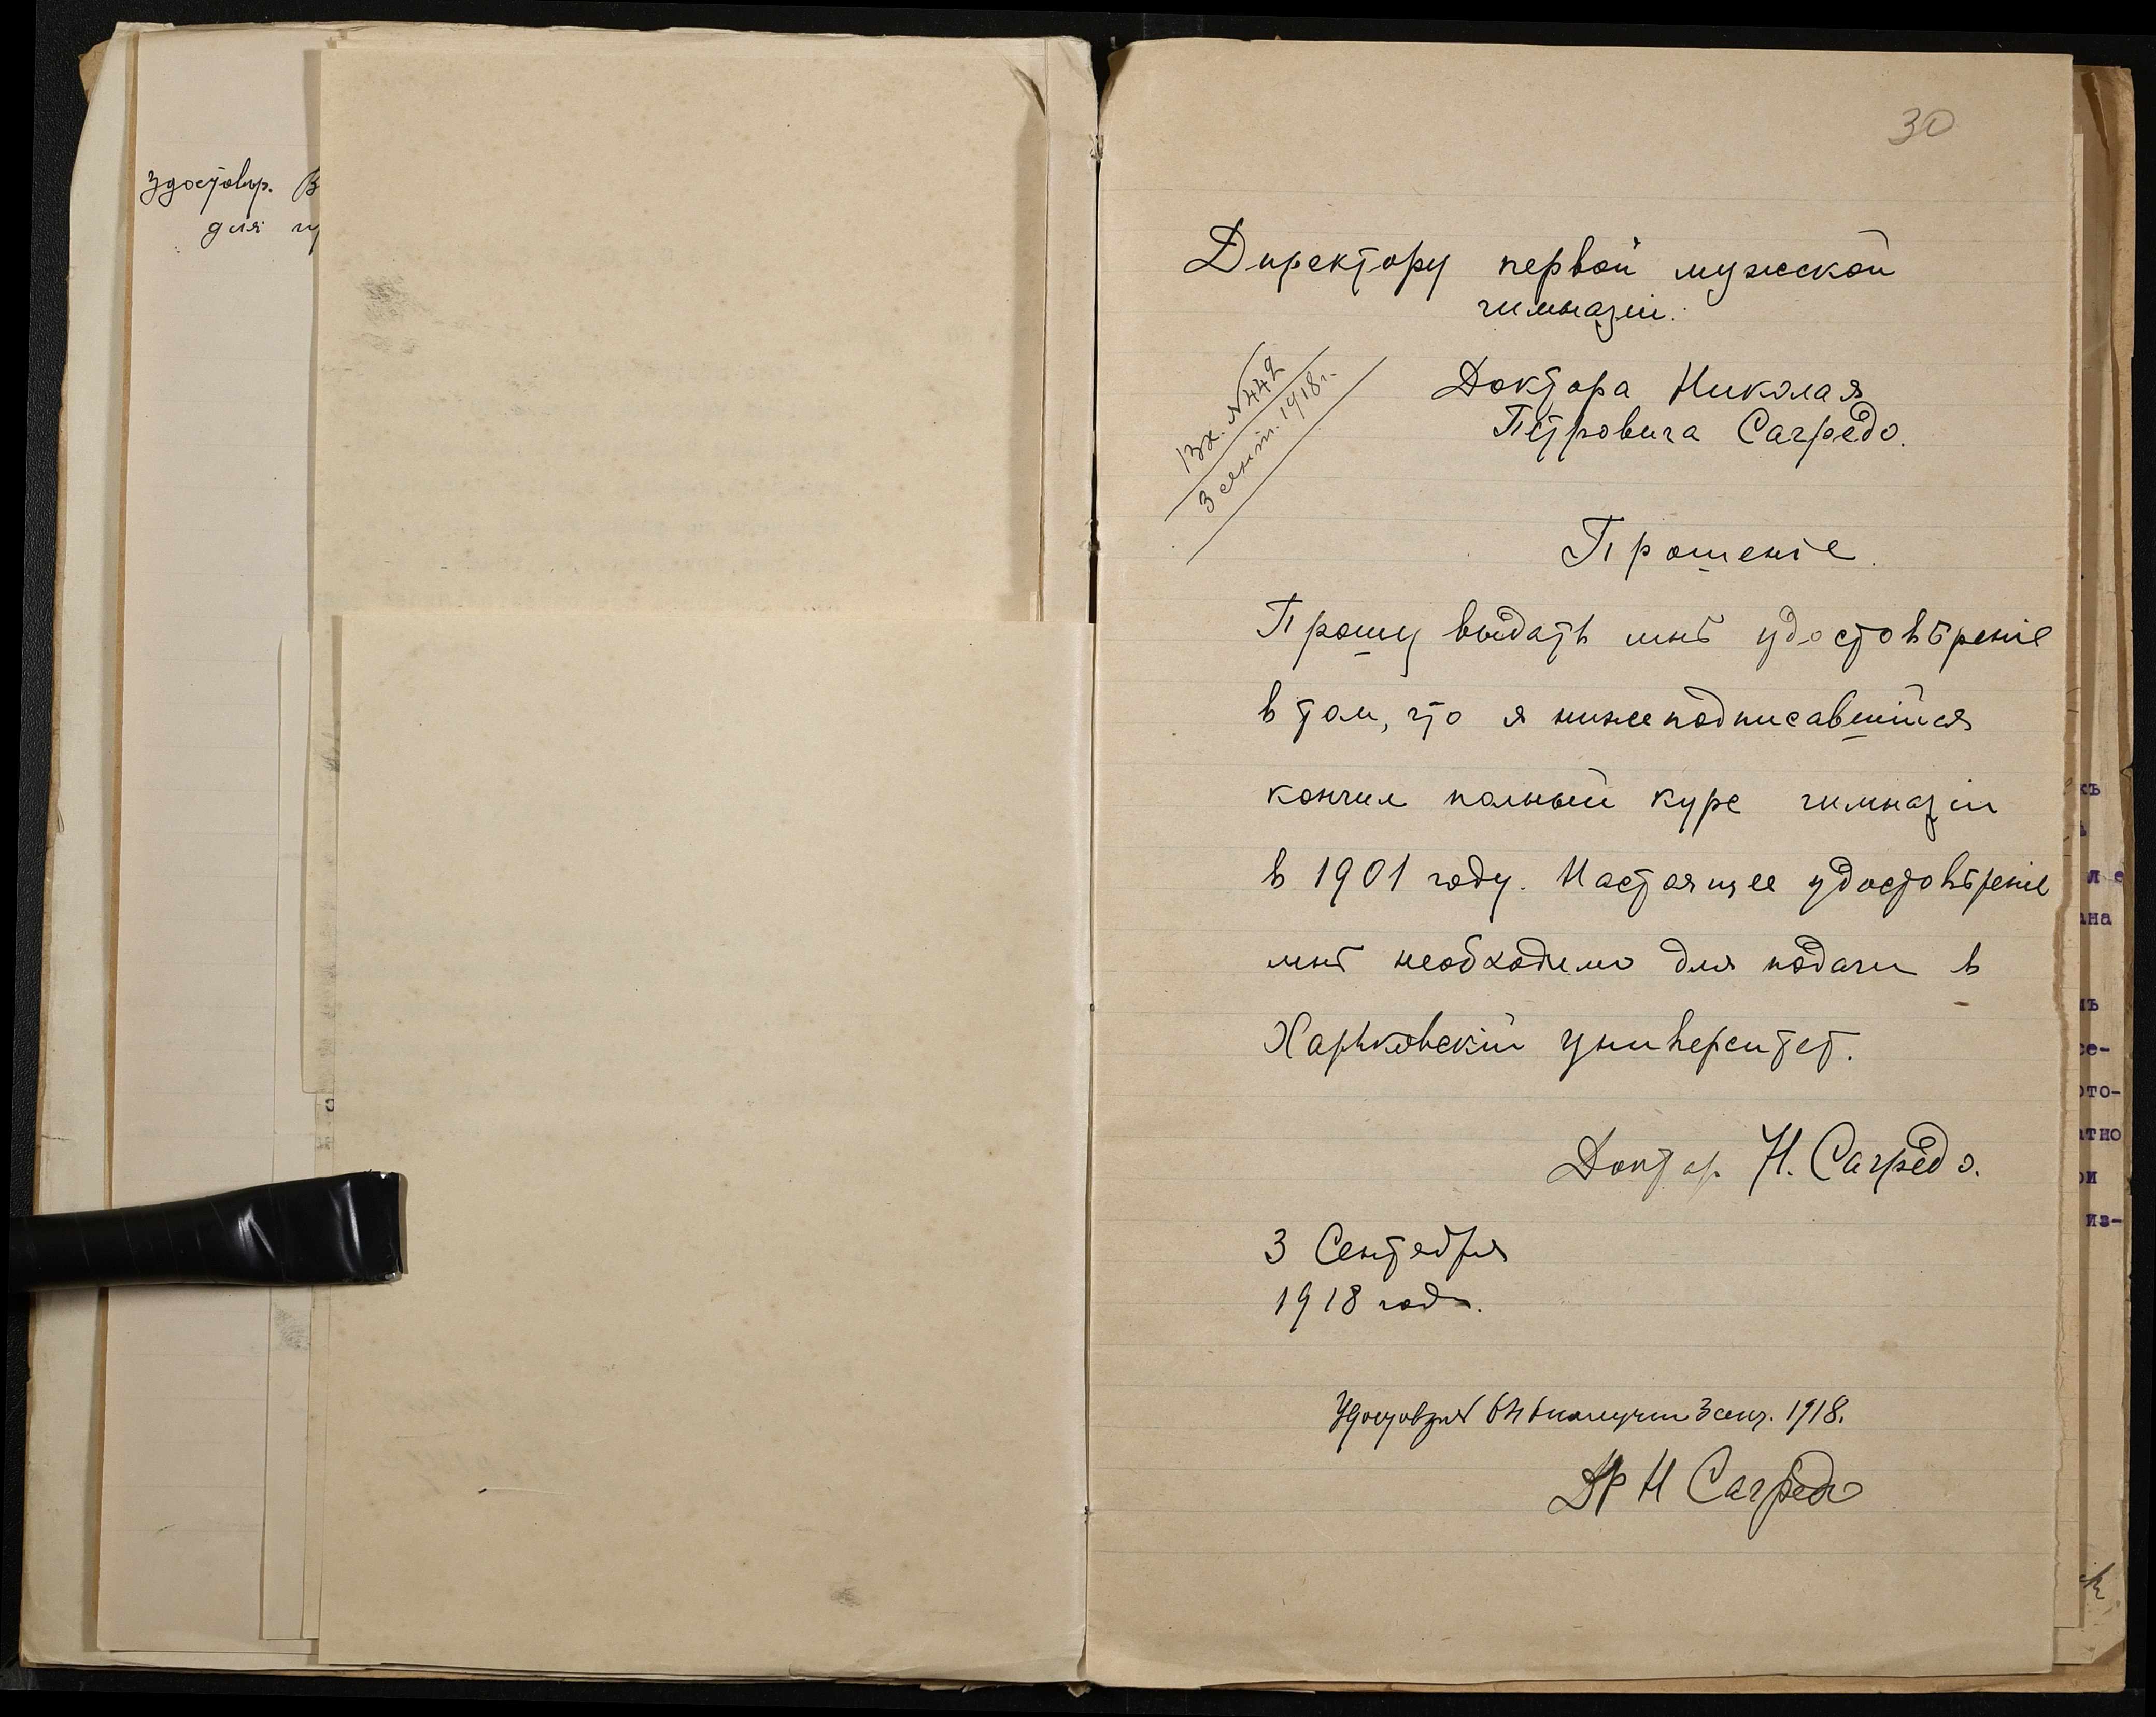 удостовѣр. В
для
30
Директору первой мужской
гимназіи.
Вх. № 442
3 сент. 1918 г.
Доктора Николая
Петровича Сагредо.
Прошеніе.
Прошу выдать мнѣ удостовѣреніе
в том, что я нижеподписавшійся
кончил полный курс гимназіи
в 1901 году. Настоящее удостовѣреніе
мнѣ необходимо для подачи в
Харьковскій университет.
Доктор Н. Сагредо.
3 Сентября
1918 года.
получил 3 сент. 1918.
Др Н Сагредо
къ
ле
ана
мъ
се-
ото-
атно
ри
из-